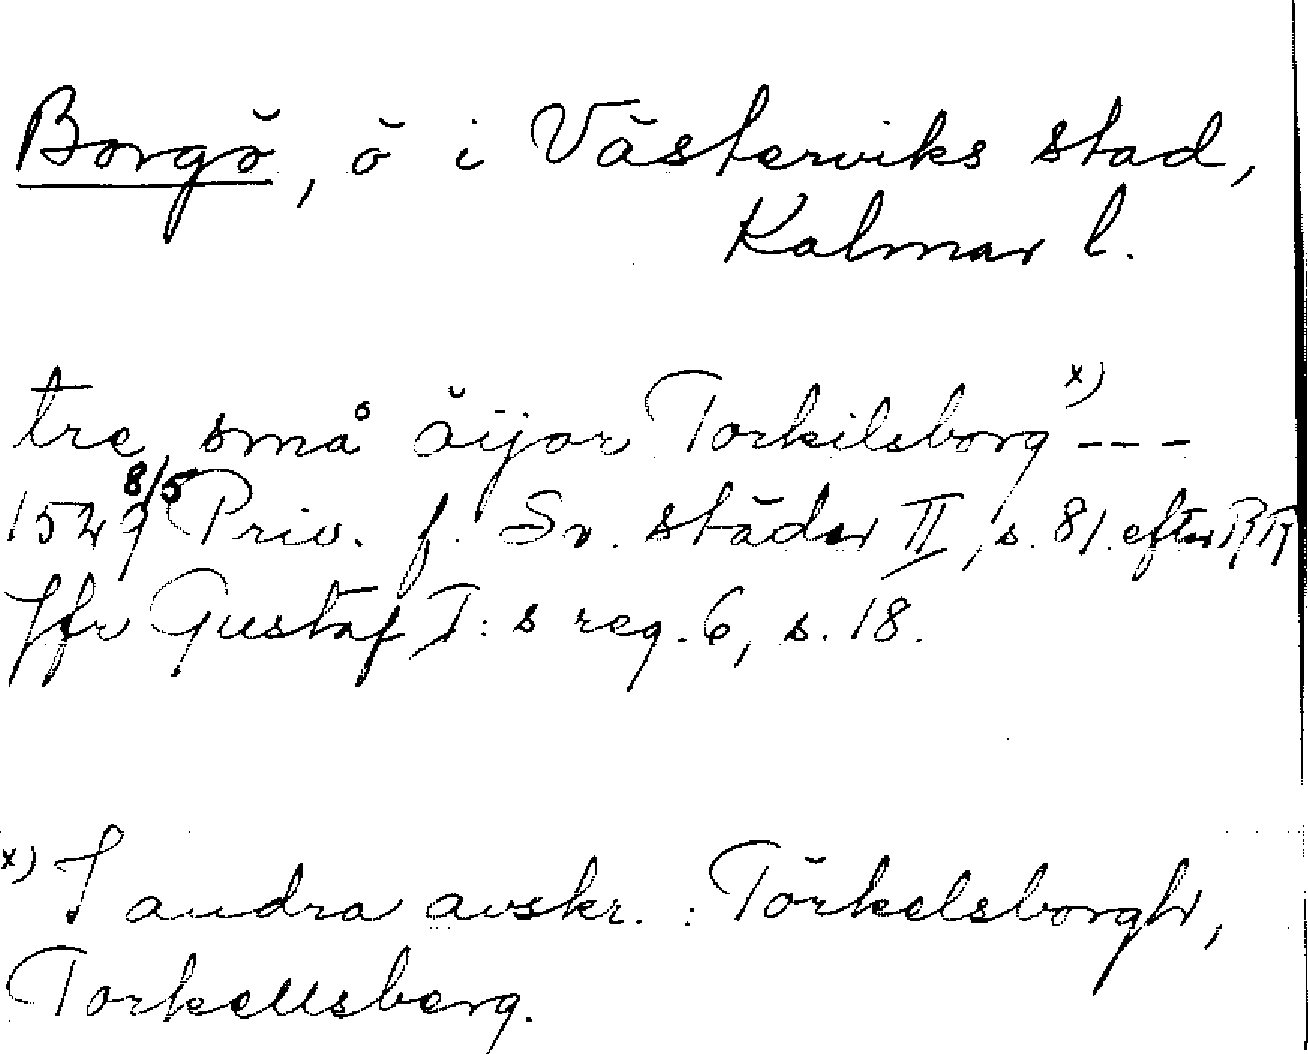 Borgö, ö i Västerviks stad,
Kalmar l.
tre små öijar Torkilsborg x) ---
1529 8/5 Priv. f. Sv. städer II, s. 81. efter RR
Jfr Gustaf I:s reg. 6, s. 18.
x) I andra avskr. : Törkelsborgh,
Torkellsberg.